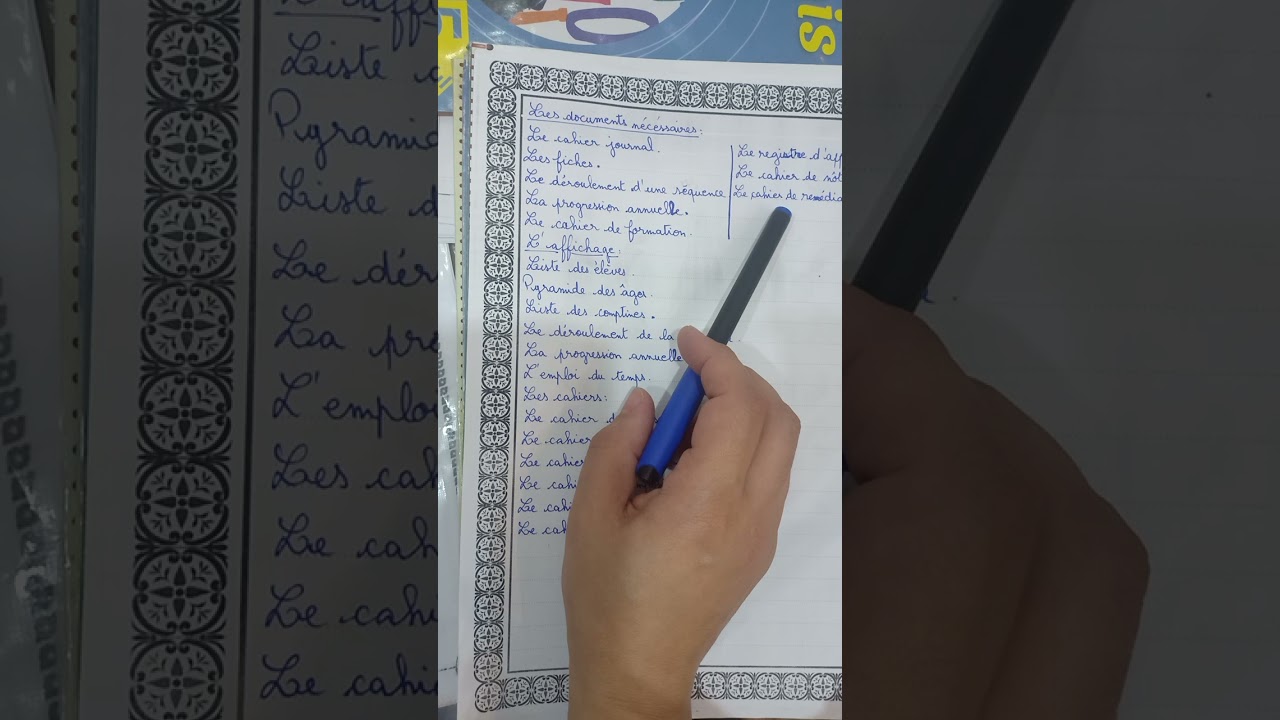 is
Les documents nécéssaires:
Le cahier journal.
Les fiches.
Le déroulement d'une séquence
La progression annuelle.
Le cahier de formation.
Le registre d'aff
Le cahier de not
Le cahier de remédia
L'affichage:
Liste des élèves.
Pyramide des âges.
Liste des comptines.
Le déroulement de la
La progression annuelle
L'emploi du temps.
Les cahiers:
Le cahier d
Le cahier
Le cahier
Le cahi
Le cahi
Le cah